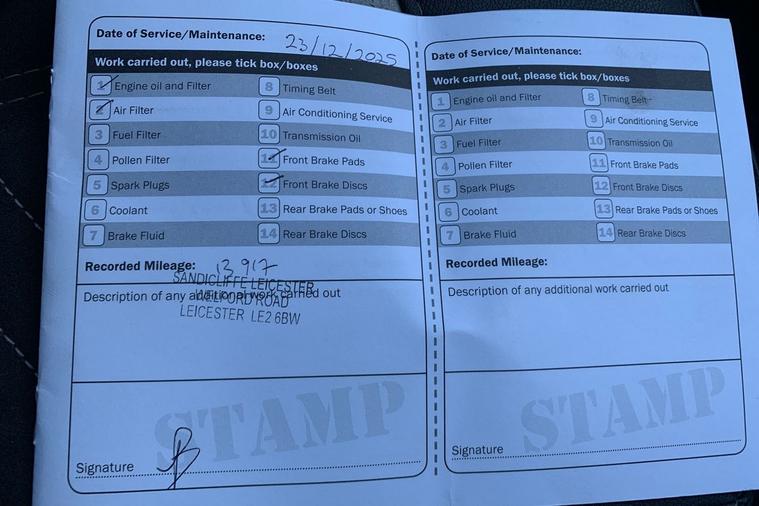 Date of Service/Maintenance: 23/12/2025
Work carried out, please tick box/boxes
1 Engine oil and Filter
2 Air Filter
3 Fuel Filter
4 Pollen Filter
5 Spark Plugs
6 Coolant
7 Brake Fluid
8 Timing Belt
9 Air Conditioning Service
10 Transmission Oil
11 Front Brake Pads
12 Front Brake Discs
13 Rear Brake Pads or Shoes
14 Rear Brake Discs
Recorded Mileage: 13 917
SANDICLIFFE LEICESTER
Description of any additional work carried out
WELFORD ROAD
LEICESTER LE2 6BW
STAMP
Signature
Date of Service/Maintenance:
Work carried out, please tick box/boxes
1 Engine oil and Filter
2 Air Filter
3 Fuel Filter
4 Pollen Filter
5 Spark Plugs
6 Coolant
7 Brake Fluid
8 Timing Belt
9 Air Conditioning Service
10 Transmission Oil
11 Front Brake Pads
12 Front Brake Discs
13 Rear Brake Pads or Shoes
14 Rear Brake Discs
Recorded Mileage:
Description of any additional work carried out
STAMP
Signature